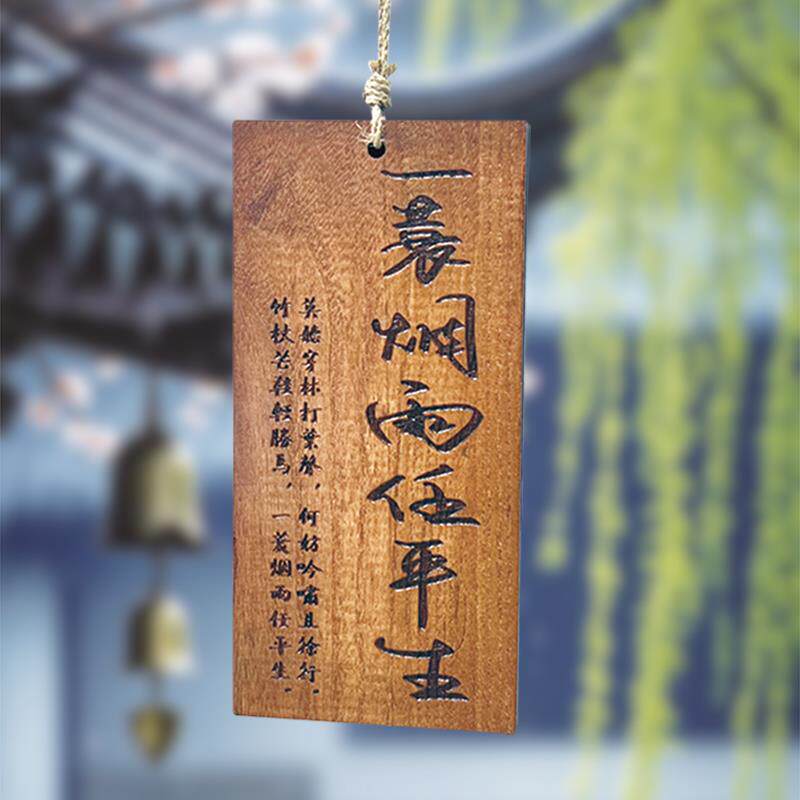 一蓑烟雨任平生
莫聽穿林打葉聲，何妨吟嘯且徐行。
竹杖芒鞋輕勝馬，一蓑烟雨任平生。